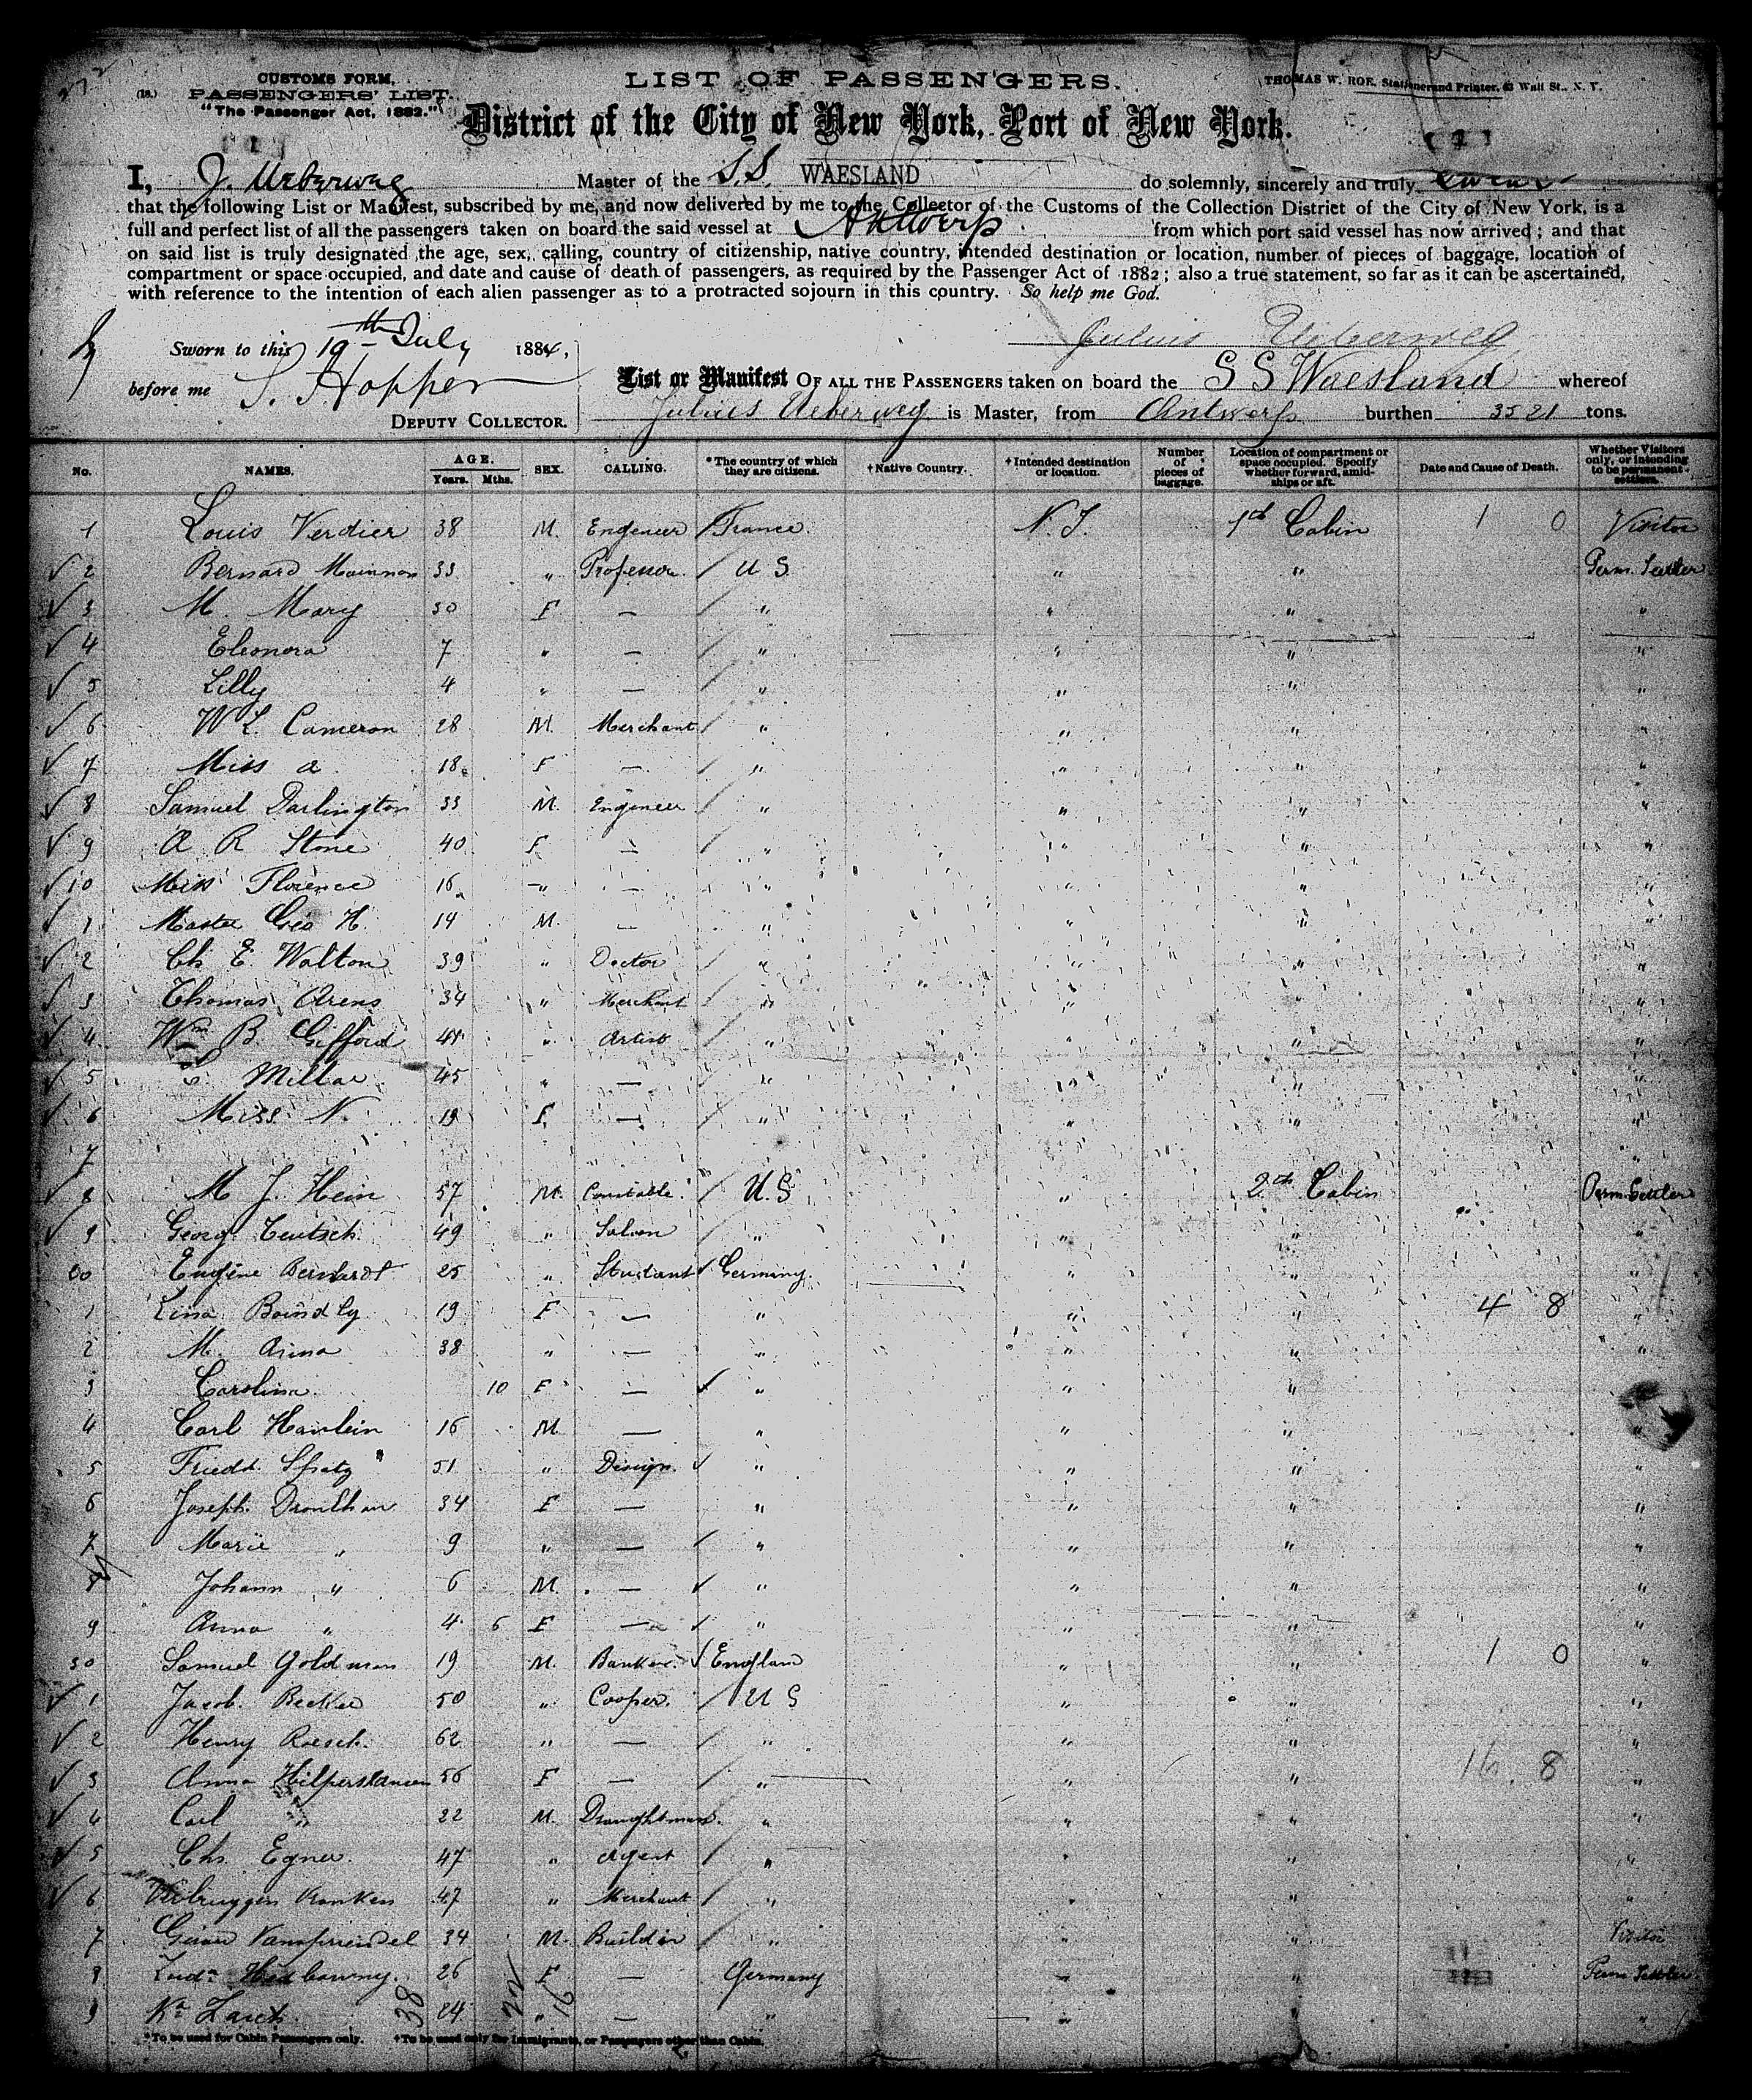 CUSTOMS FORM,
(18.) PASSENGERS' LIST.
"The Passenger Act, 1882."
LIST OF PASSENGERS.
THOMAS W. ROE, Stationer and Printer, 63 Wall St., N. Y.
District of the City of New York, Port of New York.
I, J. Ueberweg Master of the S.S. WAESLAND do solemnly, sincerely and truly swear
that the following List or Manifest, subscribed by me, and now delivered by me to the Collector of the Customs of the Collection District of the City of New York, is a
full and perfect list of all the passengers taken on board the said vessel at Antwerp from which port said vessel has now arrived; and that
on said list is truly designated the age, sex, calling, country of citizenship, native country, intended destination or location, number of pieces of baggage, location of
compartment or space occupied, and date and cause of death of passengers, as required by the Passenger Act of 1882; also a true statement, so far as it can be ascertained,
with reference to the intention of each alien passenger as to a protracted sojourn in this country. So help me God.
Sworn to this 19th July 1884,
Julius Ueberweg
before me S. Hopper
DEPUTY COLLECTOR.
List or Manifest OF ALL THE PASSENGERS taken on board the S S Waesland whereof
Julius Ueberweg is Master, from Antwerp burthen 3521 tons.
No. NAMES. AGE. Years. Mths. SEX. CALLING. *The country of which they are citizens. †Native Country. †Intended destination or location. Number of pieces of baggage. Location of compartment or space occupied. Specify whether forward, amidships or aft. Date and Cause of Death. Whether Visitors only, or intending to be permanent settlers.
1 Louis Verdier 38 M. Engeneer France N.Y. 1st Cabin 1 0 Visitor
2 Bernard 33 " Professor U S " " Perm. Settler
3 M. Mary 30 F — " " " "
4 Eleonora 7 " — " " " "
5 Lilly 4 " — " " " "
6 W L. Cameron 28 M. Merchant " " " "
7 Miss a 18 F — " " " "
8 Samuel Darlington 33 M. Engeneer " " " "
9 A R Stone 40 F — " " " "
10 Miss Florence 16 " — " " " "
1 Master Geo H. 14 M. — " " " "
2 Ch. E. Walton 39 " Doctor " " " "
3 Thomas Arens 34 " Merchant " " " "
4 Wm B. Gifford " Artist " " " "
5 Millar 45 " — " " " "
6 Miss N. 19 F. — " " " "
7
8 M J. Hein 57 M. Constable U.S " 2th Cabin Perm. Settler
9 Georg. Teutsch. 49 " Saloon " " " "
20 Eugène Bernardt 25 " Student Germany. " " "
1 Lina 19 F — " " " 4 8 "
2 M. Anna 38 " — " " " "
3 Carolina 10 F — " " " "
4 Carl Hanlein 16 M — " " " "
5 Friedd. Spatz 51 " Design. " " " "
6 Joseph. 34 F — " " " "
7 Marie " 9 " — " " " "
8 Johann " 6 M. — " " " "
9 Anna " 4 6 F — " " " "
30 Samuel Goldman 19 M. Banker England " " 1 0 "
1 Jacob. Becker 50 " Cooper. U S " " "
2 Henry Roesch. 62 " — " " " "
3 Anna 56 F — " " " 16 8 "
4 Carl " 22 M. Draughtman. " " " "
5 Chs. Egner. 47 " Agent " " " "
6 Verbruggen 47 " Merchant " " " "
7 34 M. Builder " " " Visitor
8 26 F — Germany " " Perm Settler
9 24 " — " " " "
38 22 16
*To be used for Cabin Passengers only. †To be used only for Immigrants, or Passengers other than Cabin.